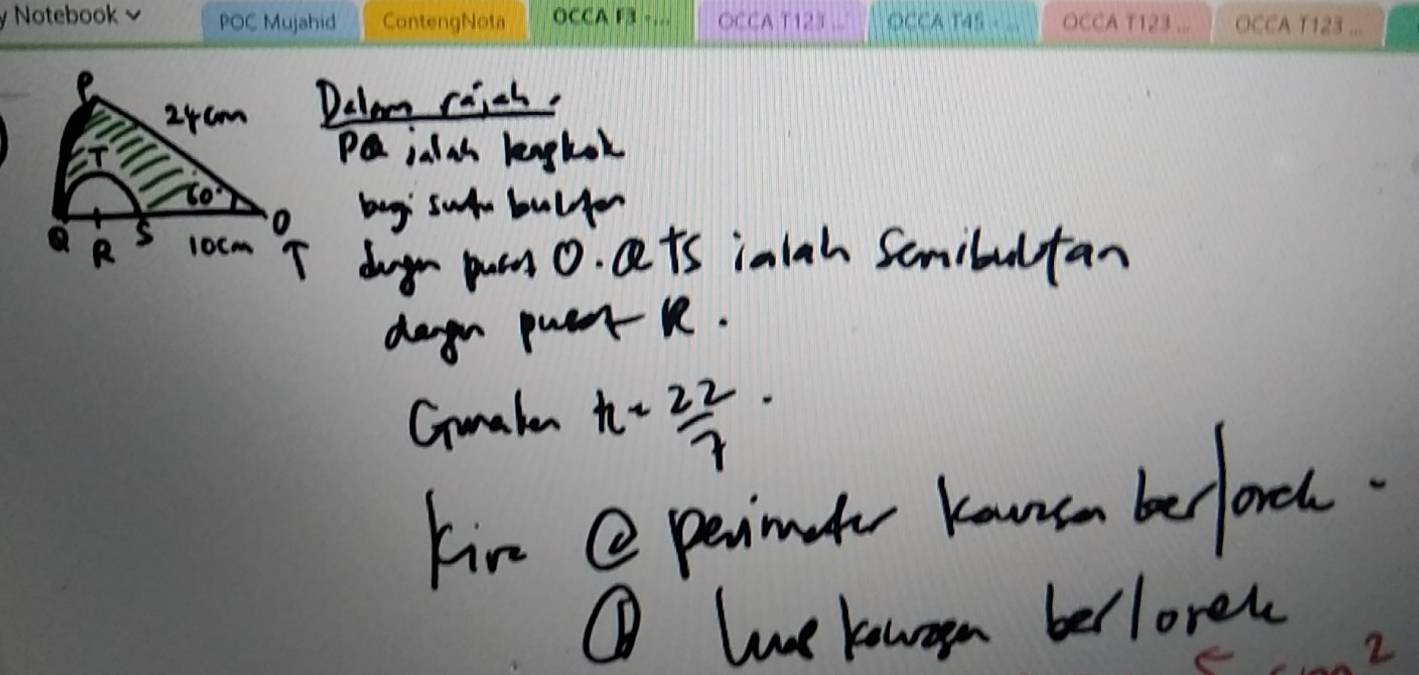 Notebook
POC Mujahid
ContengNota
OCCA F3 -...
OCCA T123 ...
OCCA T45 - ...
OCCA T123 ...
OCCA T123 ...
P
24cm
T
60°
Q
R
S
10cm
O
T
Dalam rajah,
PQ ialah lengkok
bagi suatu bulatan
dengan pusat O. QTS ialah Semibulatan
dengan pusat R.
Gunakan π = 22/7.
Kira (a) perimeter kawasan berlorek.
(b) luas kawasan berlorek
2